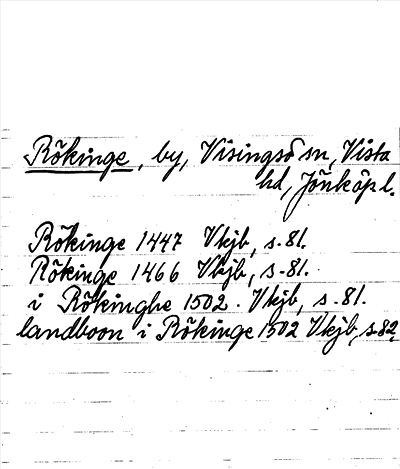 Rökinge, by, Visingsö sn, Vista
hd, Jönköp l.
Rökinge 1447 Vkjb, s. 81.
Rökinge 1466 Vkjb, s. 81.
i Rökinghe 1502. Vkjb, s. 81.
landboon i Rökinge 1502 Vkjb, s. 82.